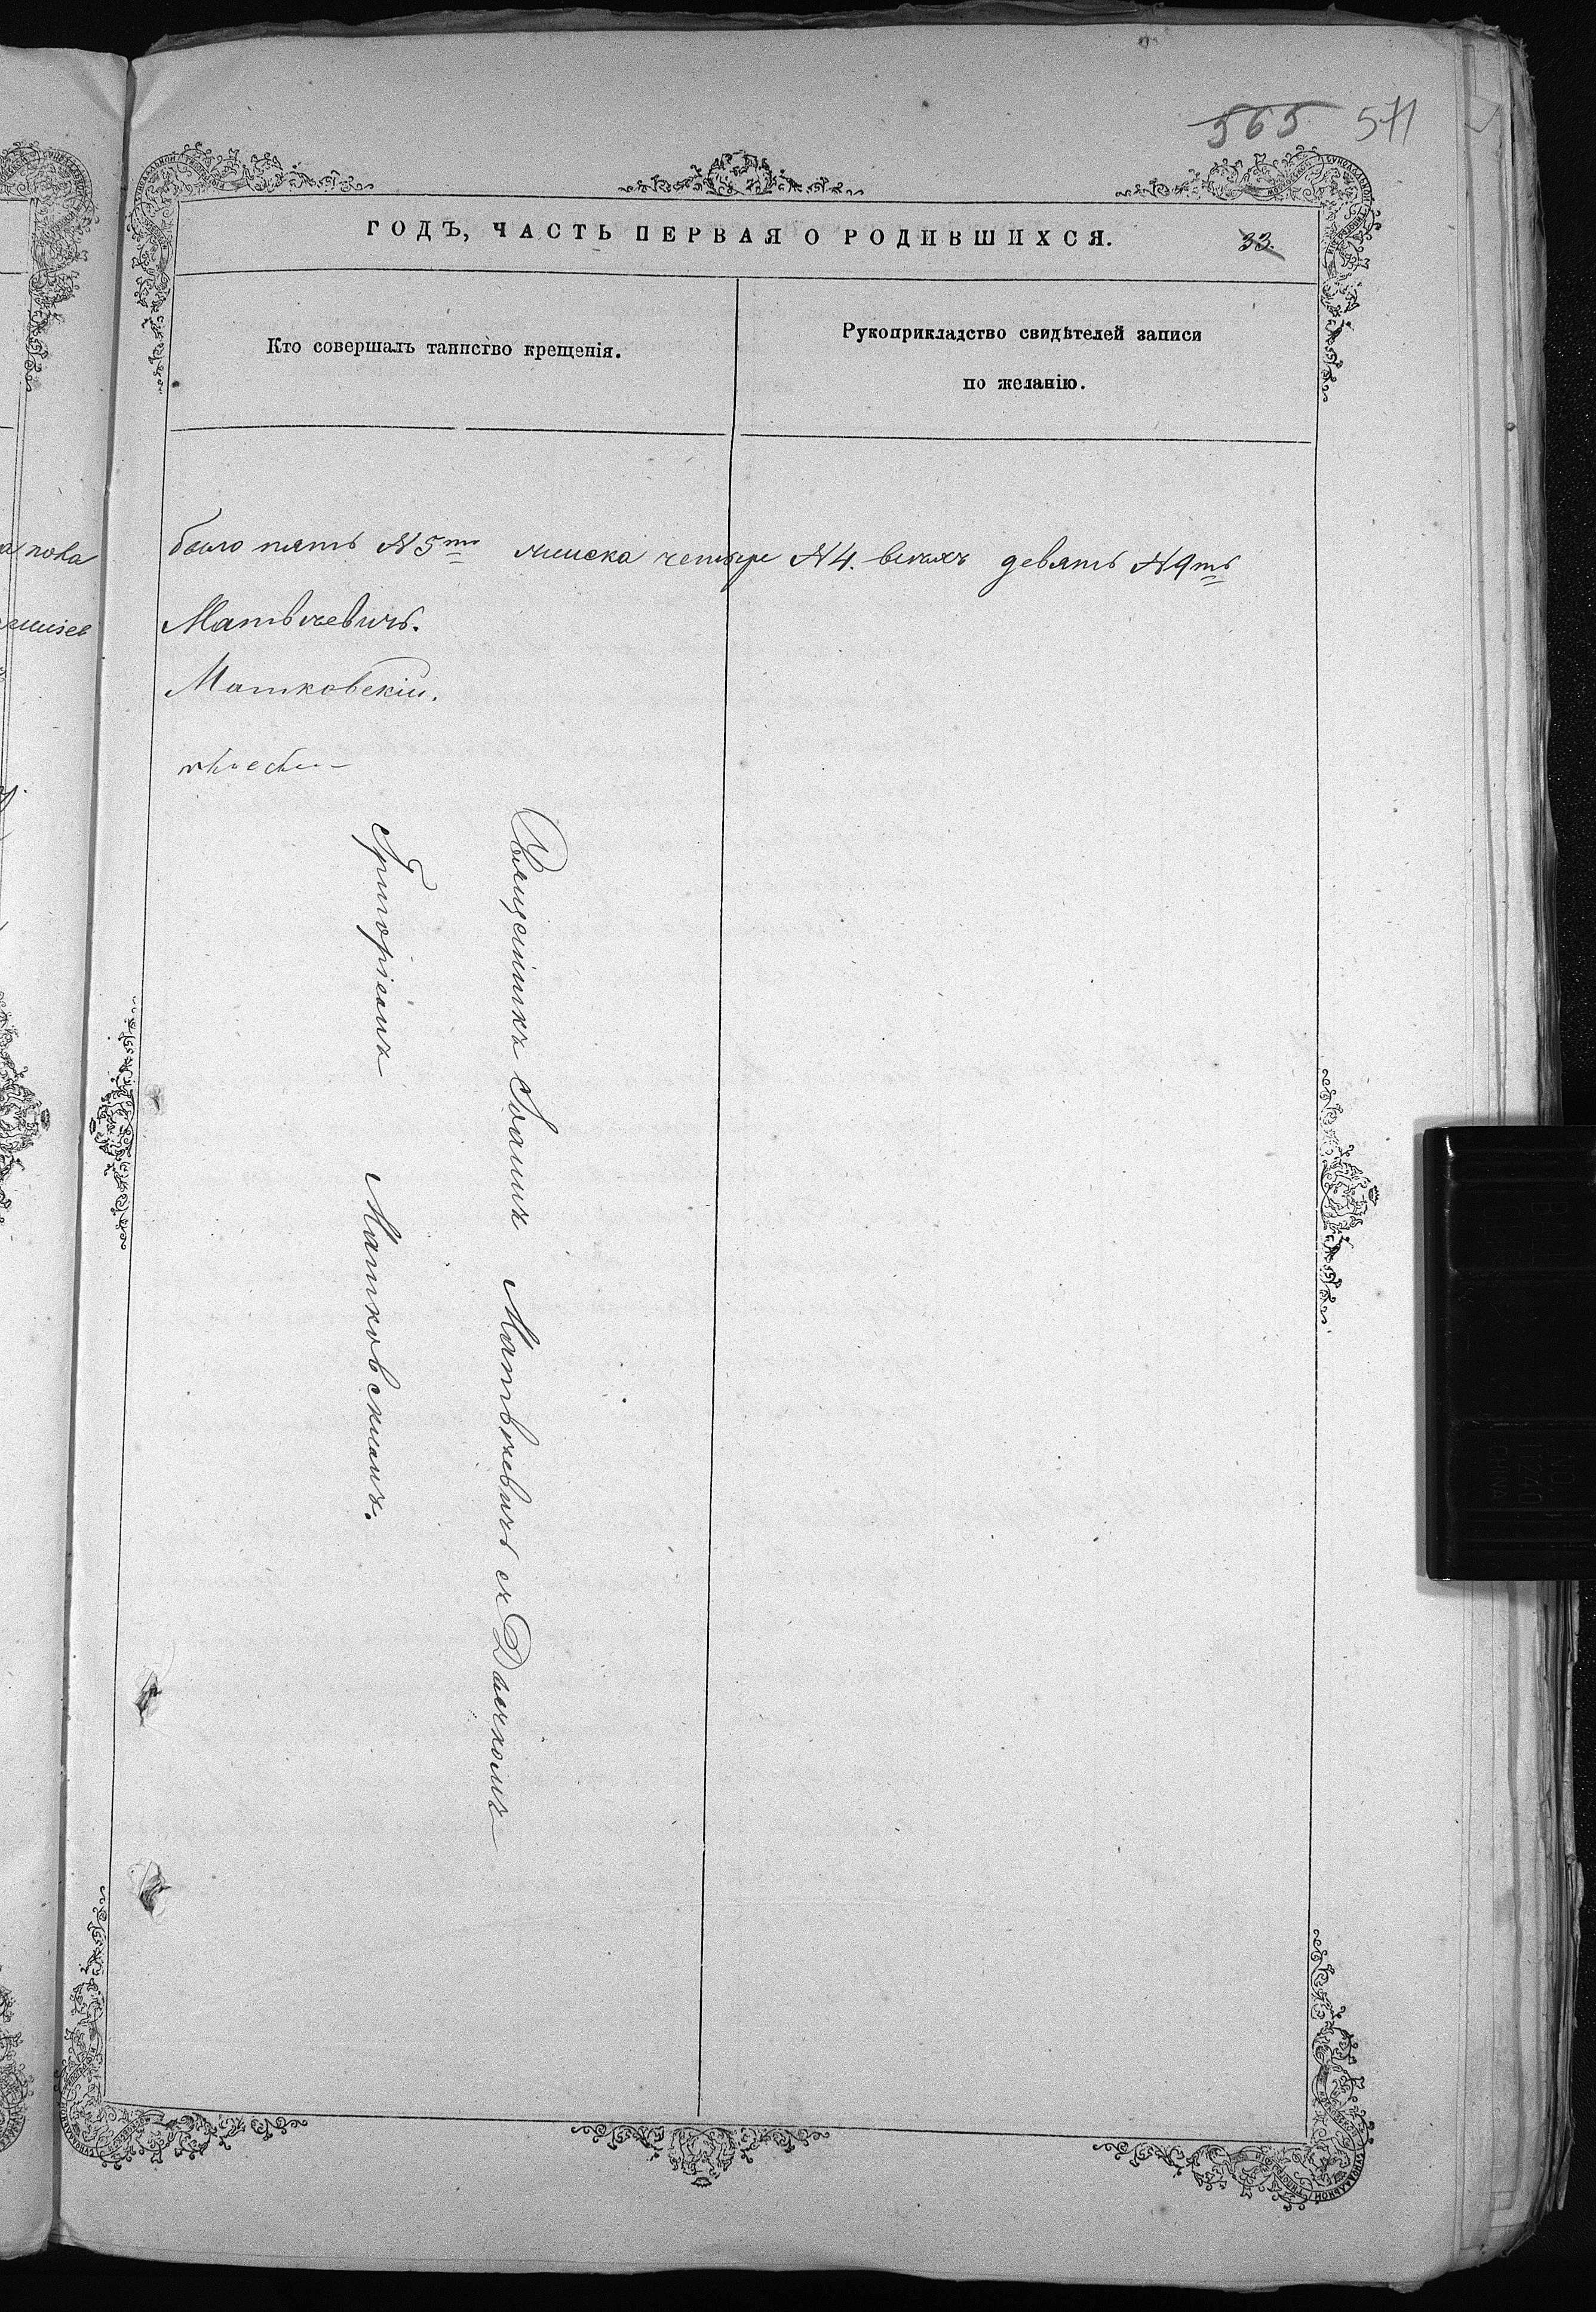 565 571
ГОДЪ, ЧАСТЬ ПЕРВАЯ О РОДИВШИХСЯ.
33.
Кто совершалъ таинство крещенія.
Рукоприкладство свидѣтелей записи
по желанію.
а пола
было пять №5ть женска четыре №4. всѣхъ девять №9ть
Матвѣевичъ.
Матковскій.
Священникъ Іоаннъ Матвѣевичъ съ Дьячкомъ
Григоріемъ Матковскимъ.